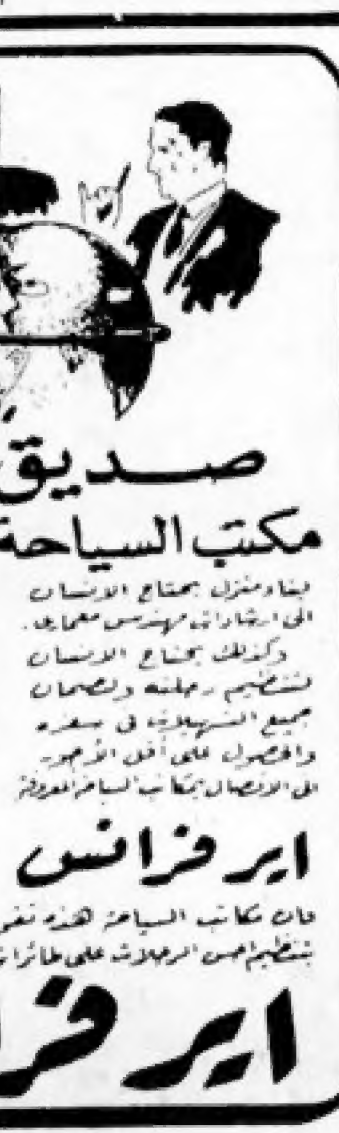 صديق
مكتب السياحة
لبناء منزل يحتاج الانسان
الى ارشادات مهندس معماري .
وكذلك يحتاج الانسان
لتنظيم رحلته ولضمان
جميع التسهيلات في سفره
والحصول على أقل الأجور
الى الاتصال بمكاتب السياحة المعروفة
اير فرانس
فان مكاتب السياحة هذه تقو
بتنظيم احسن الرحلات على طائرات
اير فرا